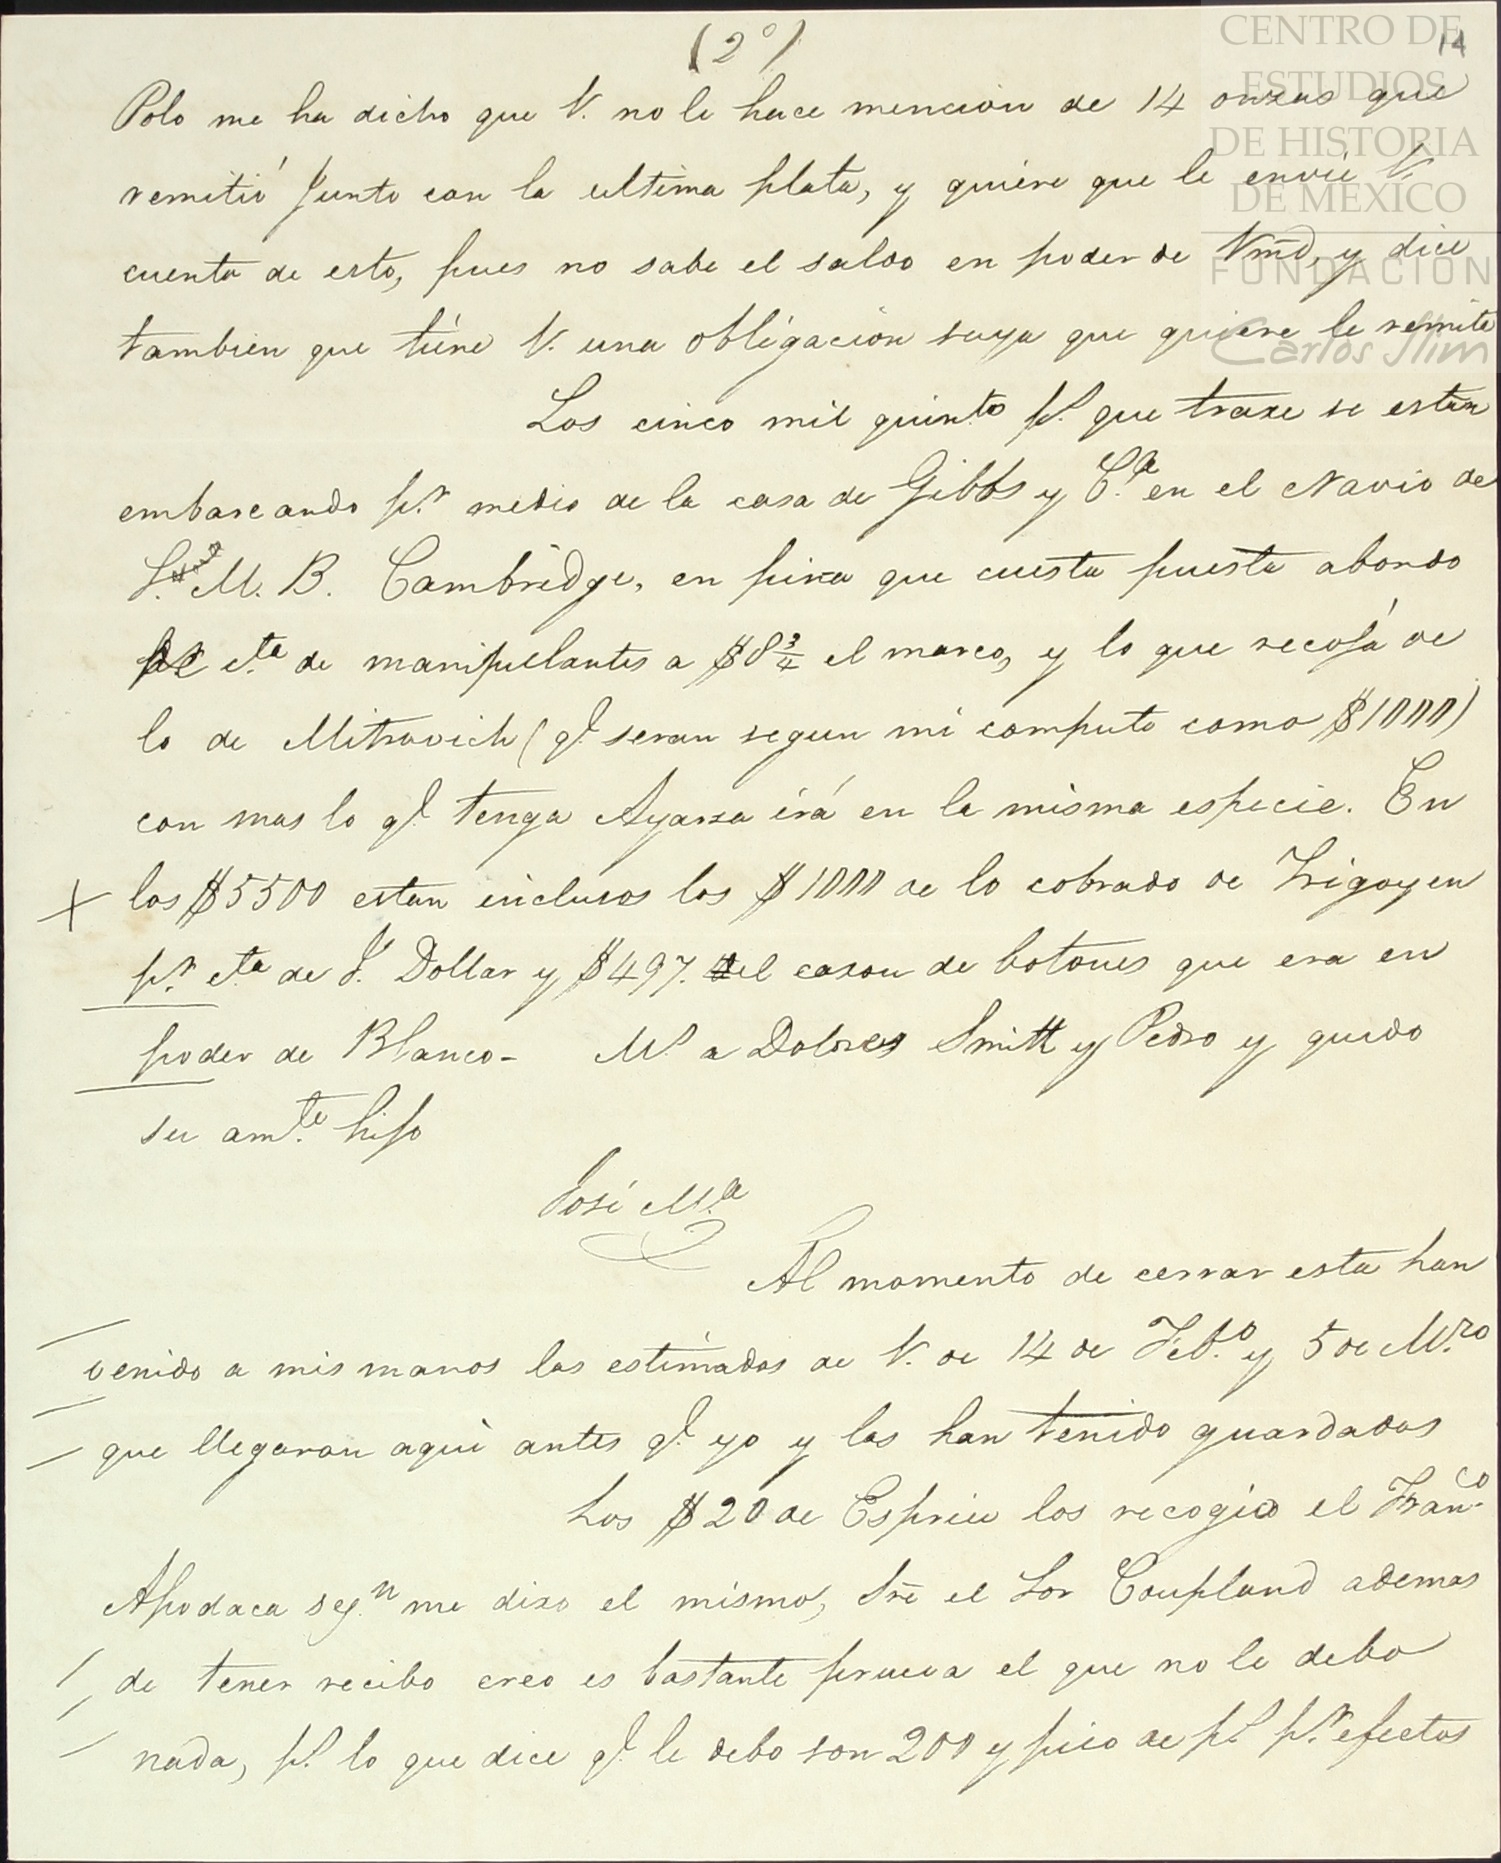 (2º)
14
CENTRO DE
ESTUDIOS
DE HISTORIA
DE MEXICO
FUNDACIÓN
Carlos Slim
Polo me ha dicho que V. no le hace mencion de 14 onzas que
remitió junto con la ultima plata, y quiere que le envie V.
cuenta de esto, pues no sabe el saldo en poder de Vmd, y dice
tambien que tiene V. una obligacion suya que quiere le remita
Los cinco mil quintos ps. que traxe se estan
embarcando pr. medio de la casa de Gibbs y Ca. en el Navio de
S. M. B. Cambridge, en pina que cuesta puesta abordo
pr cta de manipulantes a $8 3/4 el marco, y lo que recoja de
lo de Mitrovich (qe. seran segun mi computo como $1000)
con mas lo qe. tenga Ayarza irá en la misma especie. En
X los $5500 estan inclusos los $1000 de lo cobrado de Yrigoyen
pr. cta de J. Dollar y $497. del caxon de botones que era en
poder de Blanco- Ms. a Dolores Smitt y Pedro y quedo
su amte. hijo
José Ma.
Al momento de cerrar esta han
venido a mis manos las estimadas de V. de 14 de Febo. y 5 de Mzo.
que llegaron aqui antes qe. yo y las han tenido guardadas
Los $20 de Espriu los recogio el Franco.
Apodaca segn. me dixo el mismo, Sre el Sor Coupland ademas
de tener recibo creo es bastante prueva el que no le debo
nada, ps. lo que dice qe. le debo son 200 y pico de ps. pr. efectos